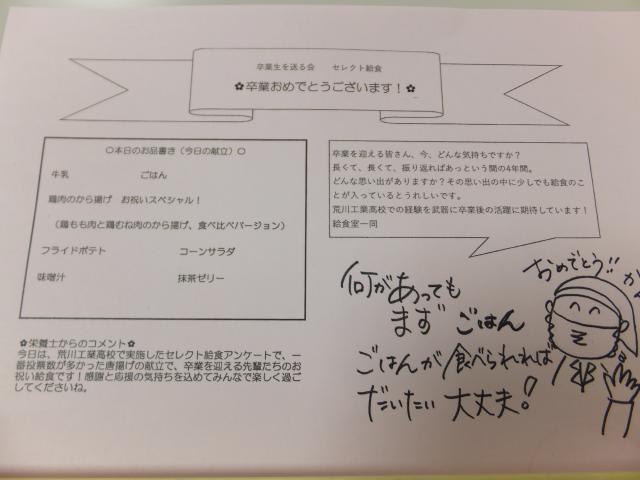 卒業生を送る会　セレクト給食
✿卒業おめでとうございます！✿
○本日のお品書き（今日の献立）○
牛乳　ごはん
鶏肉のから揚げ　お祝いスペシャル！
（鶏もも肉と鶏むね肉のから揚げ、食べ比べバージョン）
フライドポテト　コーンサラダ
味噌汁　抹茶ゼリー
✿栄養士からのコメント✿
今日は、荒川工業高校で実施したセレクト給食アンケートで、一
番投票数が多かった唐揚げの献立で、卒業を迎える先輩たちのお
祝い給食です！感謝と応援の気持ちを込めてみんなで楽しく過ご
してくださいね。
卒業を迎える皆さん、今、どんな気持ちですか？
長くて、長くて、振り返ればあっという間の4年間。
どんな思い出がありますか？その思い出の中に少しでも給食のこ
とが入っているとうれしいです。
荒川工業高校での経験を武器に卒業後の活躍に期待しています！
給食室一同
何があっても
まず ごはん
ごはんが 食べられれば
だいたい 大丈夫！
おめでとう!!